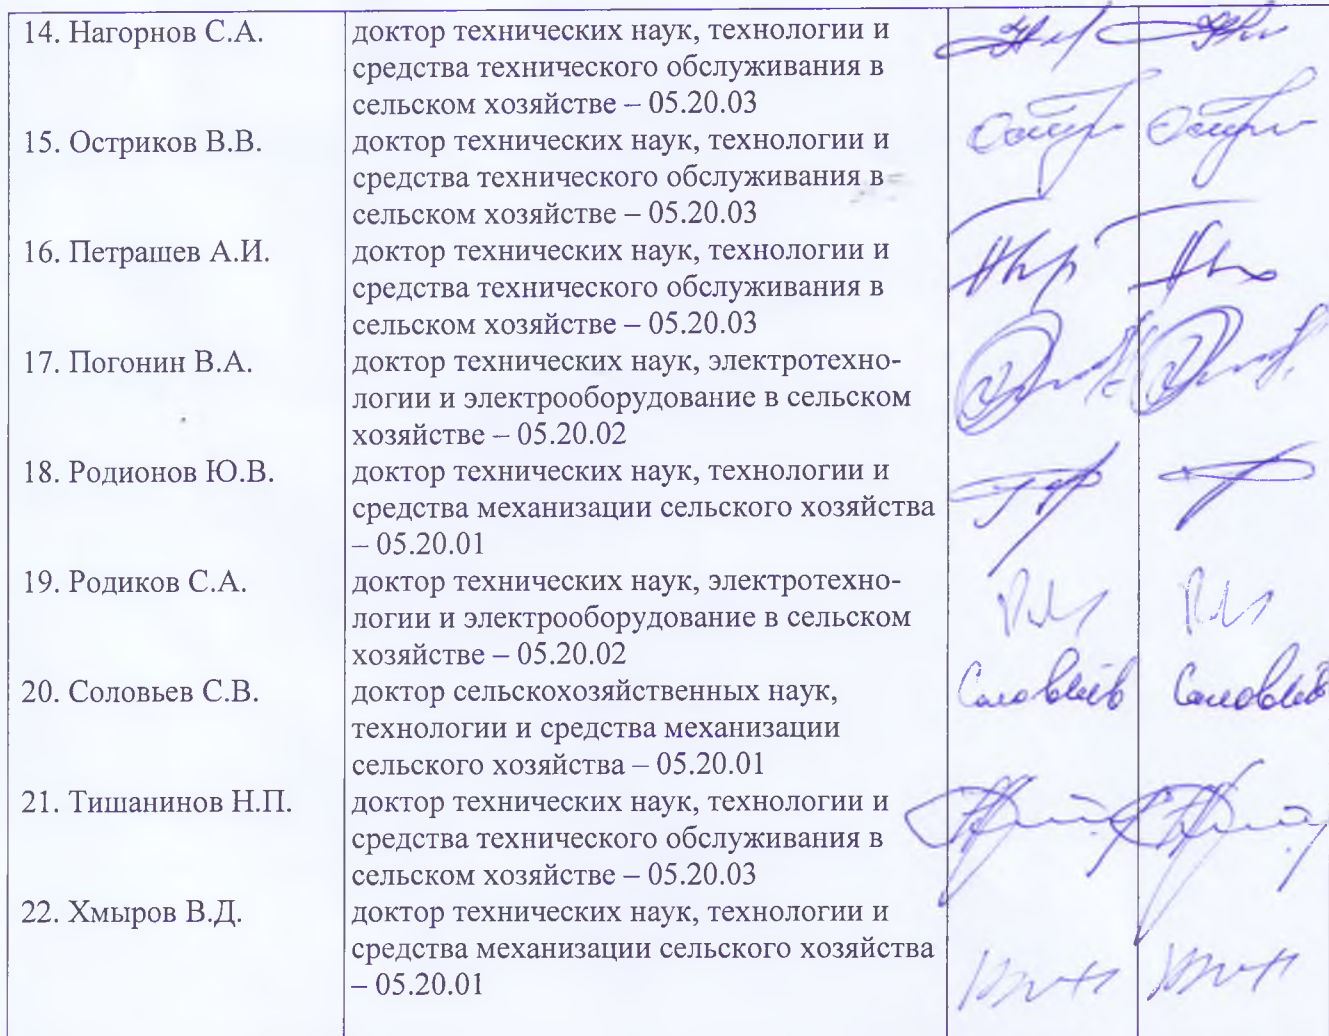 14. Нагорнов С.А. доктор технических наук, технологии и
средства технического обслуживания в
сельском хозяйстве – 05.20.03
15. Остриков В.В. доктор технических наук, технологии и
средства технического обслуживания в
сельском хозяйстве – 05.20.03
16. Петрашев А.И. доктор технических наук, технологии и
средства технического обслуживания в
сельском хозяйстве – 05.20.03
17. Погонин В.А. доктор технических наук, электротехно-
логии и электрооборудование в сельском
хозяйстве – 05.20.02
18. Родионов Ю.В. доктор технических наук, технологии и
средства механизации сельского хозяйства
– 05.20.01
19. Родиков С.А. доктор технических наук, электротехно-
логии и электрооборудование в сельском
хозяйстве – 05.20.02
20. Соловьев С.В. доктор сельскохозяйственных наук,
технологии и средства механизации
сельского хозяйства – 05.20.01
21. Тишанинов Н.П. доктор технических наук, технологии и
средства технического обслуживания в
сельском хозяйстве – 05.20.03
22. Хмыров В.Д. доктор технических наук, технологии и
средства механизации сельского хозяйства
– 05.20.01